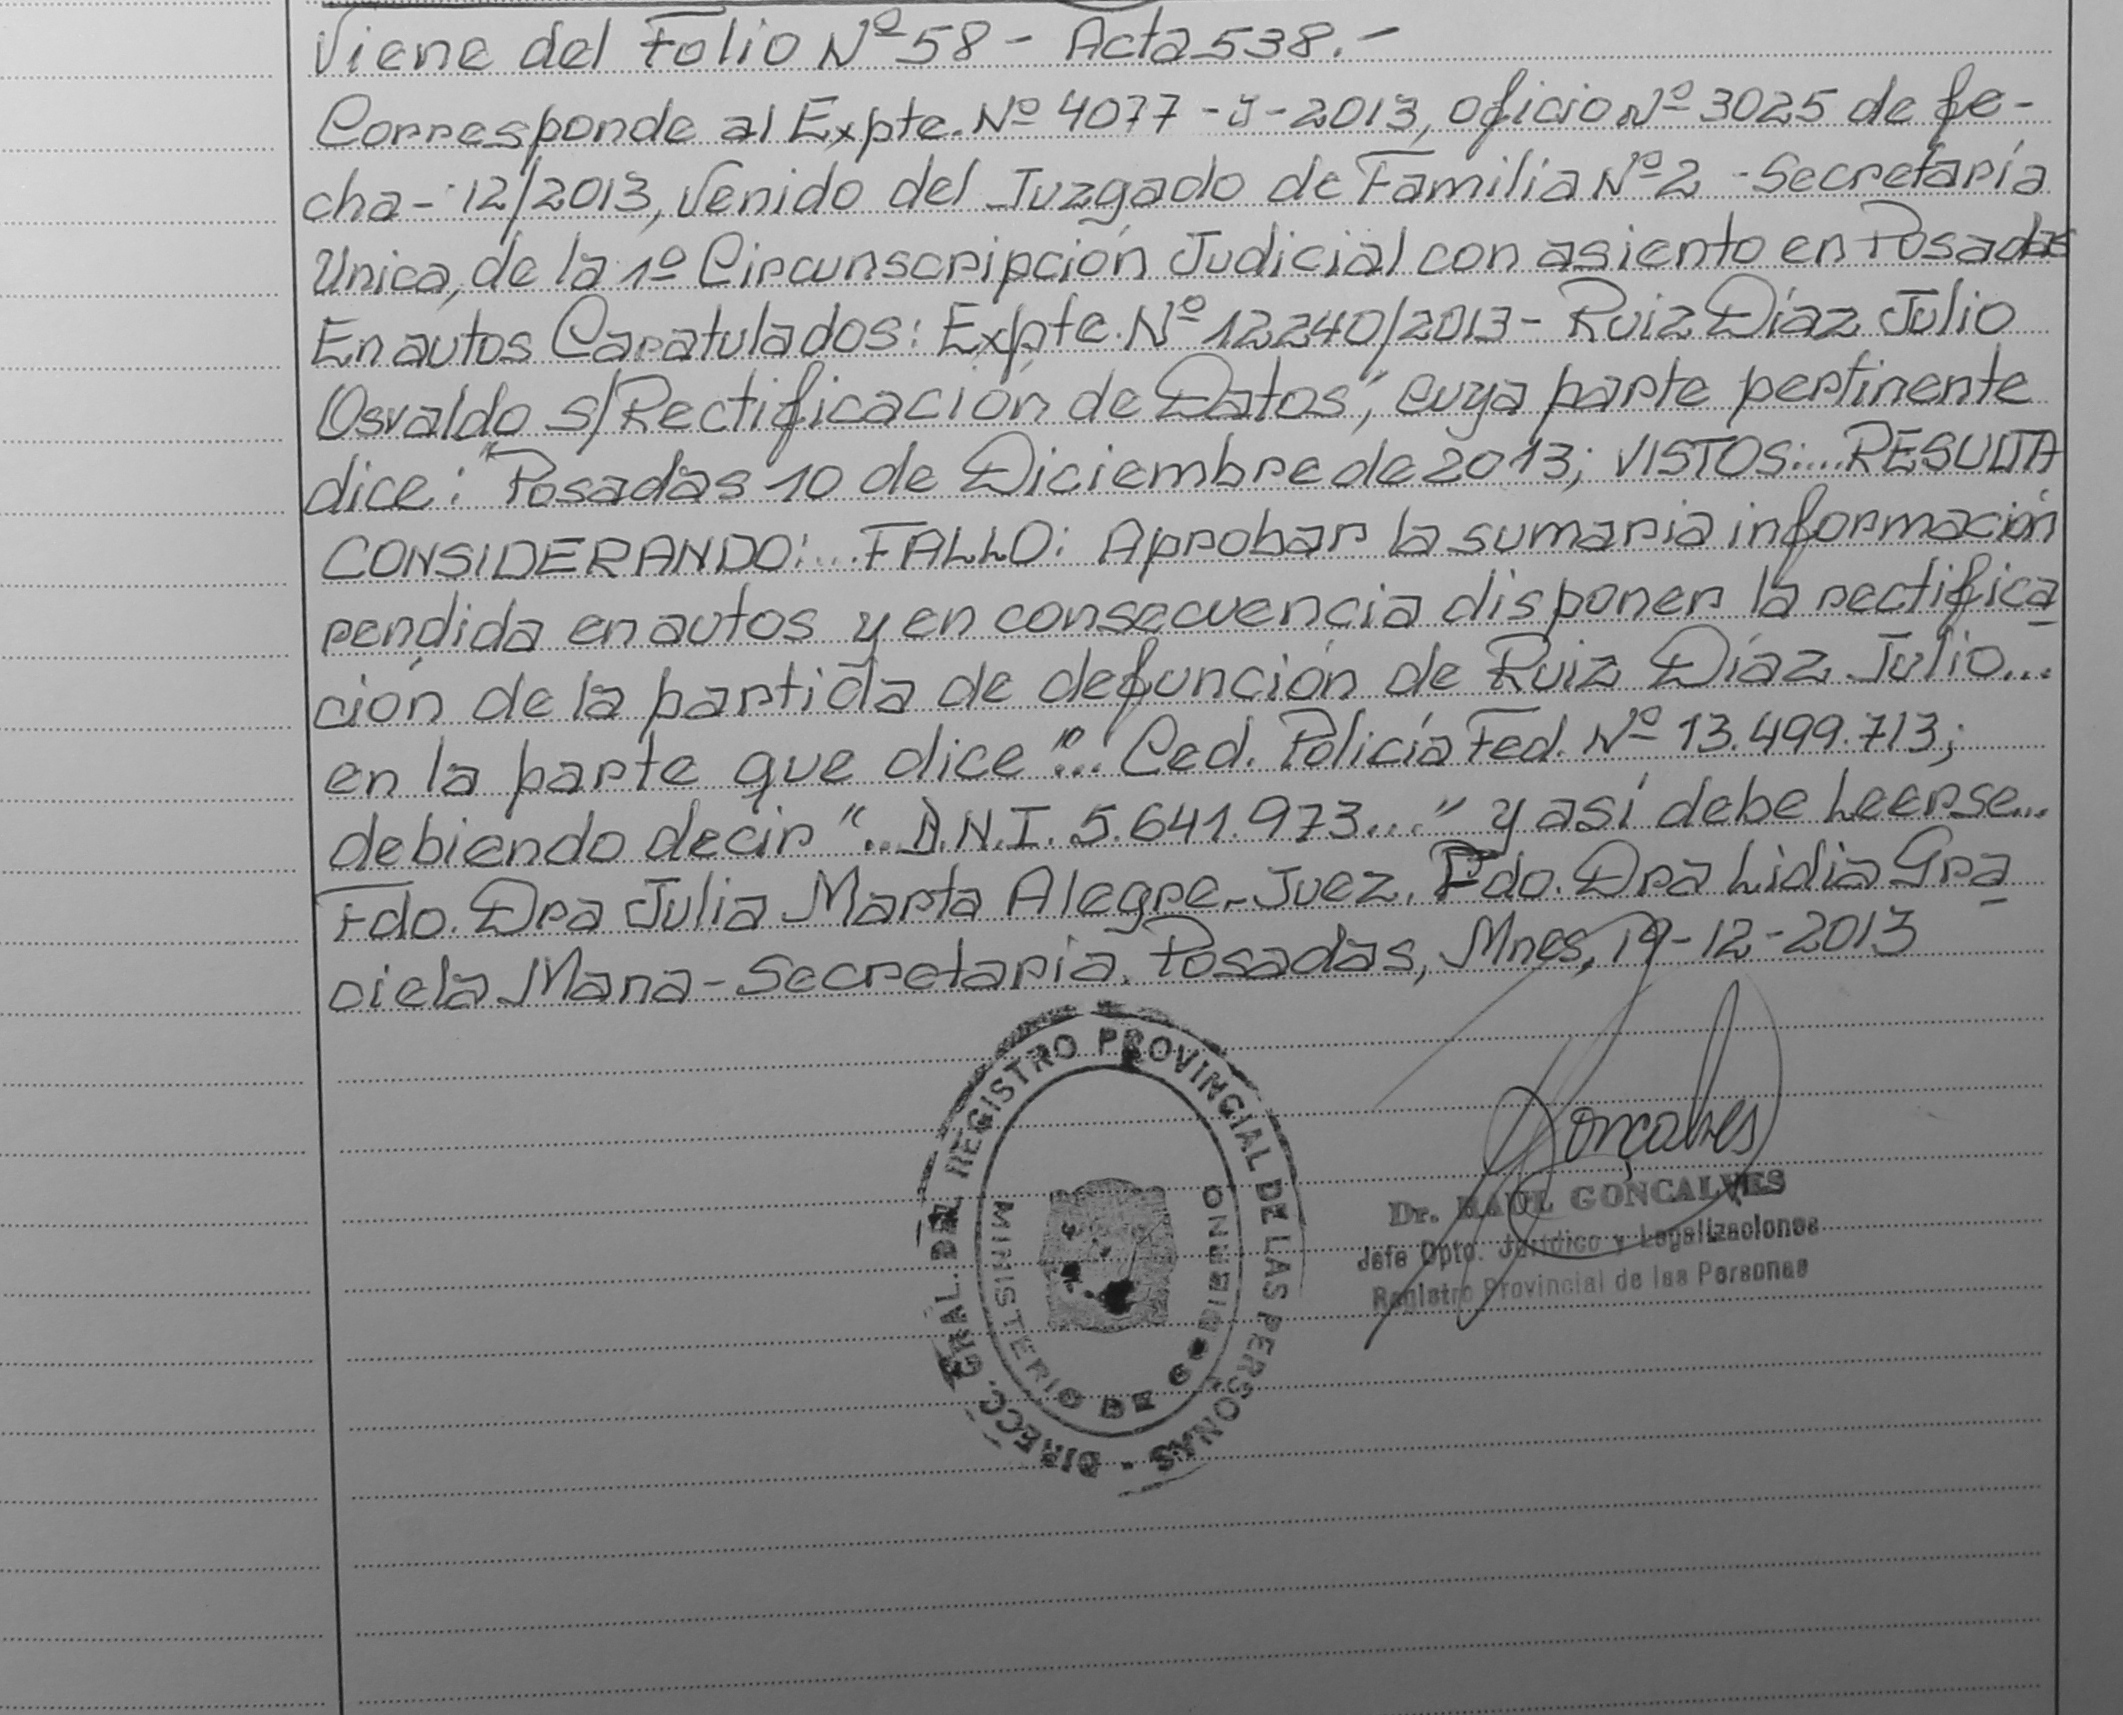 Viene del Folio Nº 58 - Acta 538.-
Corresponde al Expte. Nº 4077 - J - 2013, oficio Nº 3025 de fe-
cha - 12/2013, venido del Juzgado de Familia Nº 2 - Secretaría
Unica, de la 1º Circunscripción Judicial con asiento en Posadas
En autos Caratulados: Expte. Nº 12240/2013 - Ruiz Díaz Julio
Osvaldo s/Rectificación de Datos", cuya parte pertinente
dice: "Posadas 10 de Diciembre de 2013; VISTOS:... RESULTA
CONSIDERANDO:... FALLO: Aprobar la sumaria información
rendida en autos y en consecuencia disponer la rectifica
ción de la partida de defunción de Ruiz Díaz Julio...
en la parte que dice "... Ced. Policía Fed. Nº 13.499.713;
debiendo decir "... D.N.I. 5.641.973..." y así debe Leerse...
Fdo. Dra Julia Marta Alegre - Juez. Fdo. Dra Lidia Gra
ciela Mana - Secretaria. Posadas, Mnes, 19-12-2013
DIRECC. GRAL. DEL REGISTRO PROVINCIAL DE LAS PERSONAS -
MINISTERIO DE GOBIERNO
Gonçalves
Dr. RAUL GONCALVES
Jefe Dpto. Jurídico y Legalizaciones
Registro Provincial de las Personas